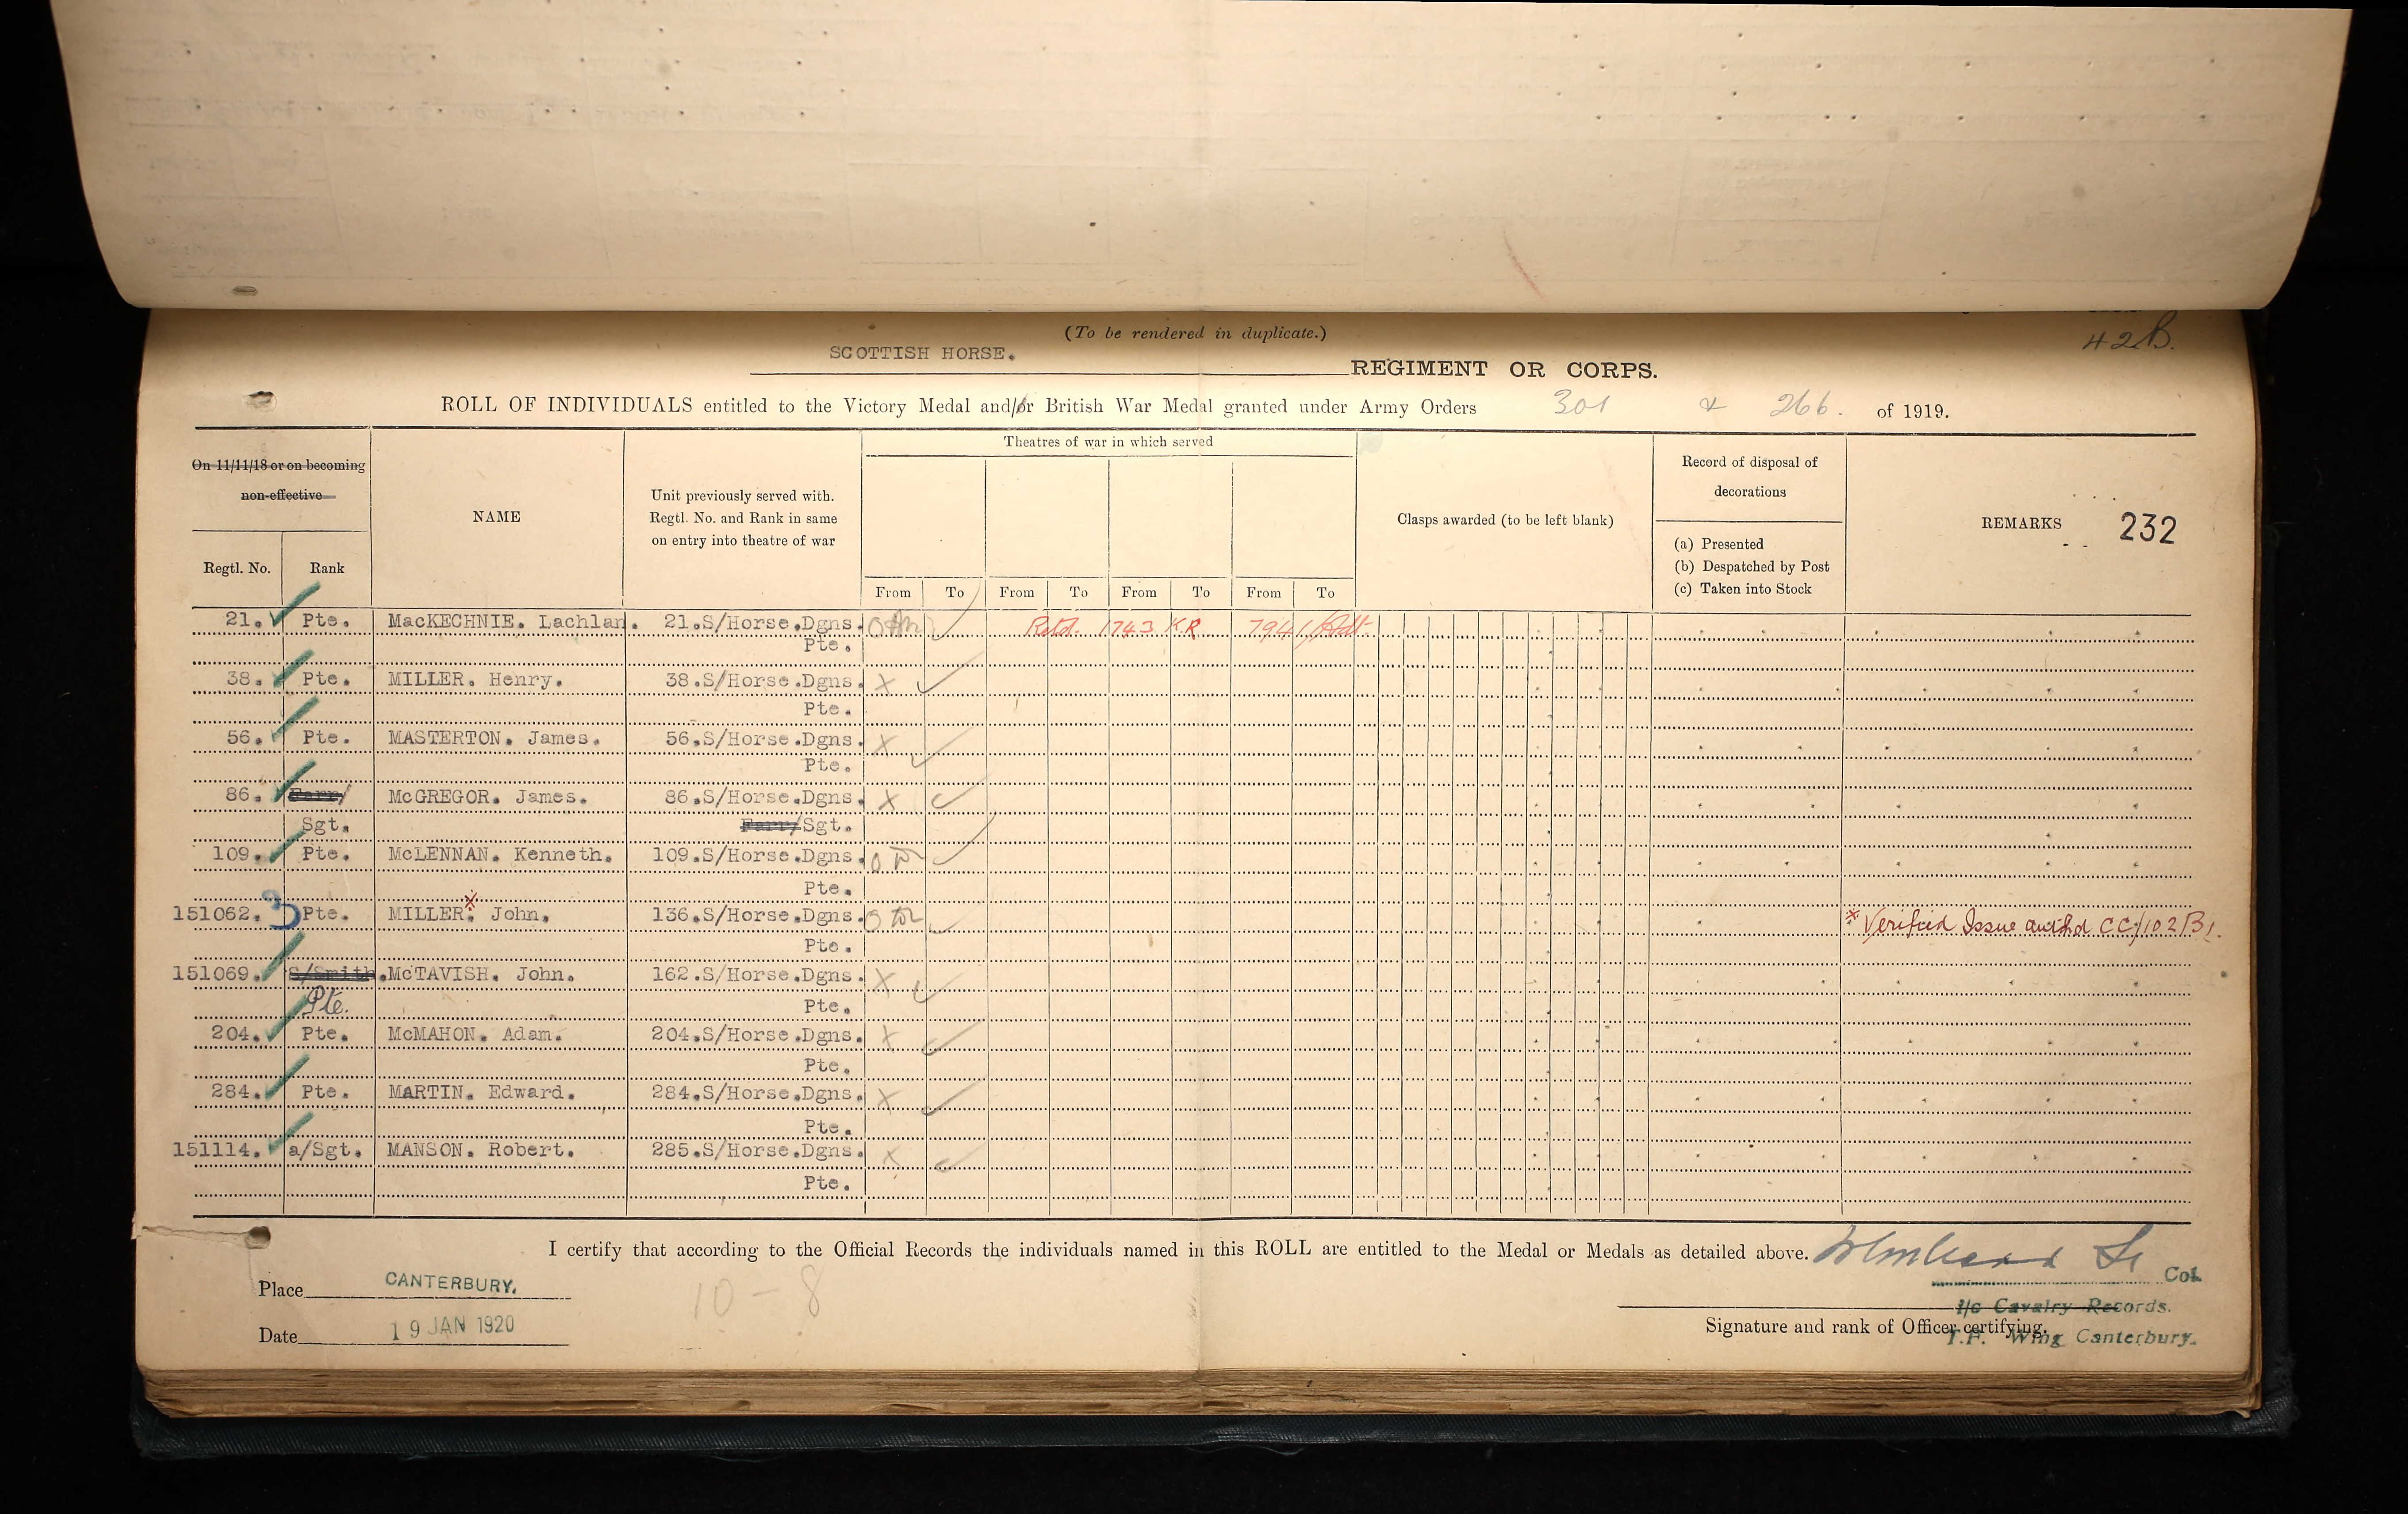 (To be rendered in duplicate.)
42B.
SCOTTISH HORSE.
REGIMENT OR CORPS.
ROLL OF INDIVIDUALS entitled to the Victory Medal and/or British War Medal granted under Army Orders 301 & 266. of 1919.
On 11/11/18 or on becoming
non-effective
Regtl. No.
Rank
NAME
Unit previously served with.
Regtl. No. and Rank in same
on entry into theatre of war
Theatres of war in which served
From To From To From To From To
Clasps awarded (to be left blank)
Record of disposal of
decorations
(a) Presented
(b) Despatched by Post
(c) Taken into Stock
REMARKS 232
21. Pte. MacKECHNIE. Lachlan. 21.S/Horse.Dgns. Retd. 1743 KR 7941/Adt.
Pte.
38. Pte. MILLER. Henry. 38.S/Horse.Dgns. X
Pte.
56. Pte. MASTERTON. James. 56.S/Horse.Dgns. X
Pte.
86. Farr/ McGREGOR. James. 86.S/Horse.Dgns. X
Sgt. Farr/Sgt.
109. Pte. McLENNAN. Kenneth. 109.S/Horse.Dgns.
Pte.
151062. Pte. MILLER. John. 136.S/Horse.Dgns. Verified Issue authd CC/102B/.
Pte.
151069. S/Smith. McTAVISH. John. 162.S/Horse.Dgns. X
Pte. Pte.
204. Pte. McMAHON. Adam. 204.S/Horse.Dgns. X
Pte.
284. Pte. MARTIN. Edward. 284.S/Horse.Dgns. X
Pte.
151114. a/Sgt. MANSON. Robert. 285.S/Horse.Dgns. X
Pte.
I certify that according to the Official Records the individuals named in this ROLL are entitled to the Medal or Medals as detailed above.
Col.
Place CANTERBURY.
10 - 8
i/c Cavalry Records.
Date 19 JAN 1920
Signature and rank of Officer certifying.
T.F. Wing Canterbury.